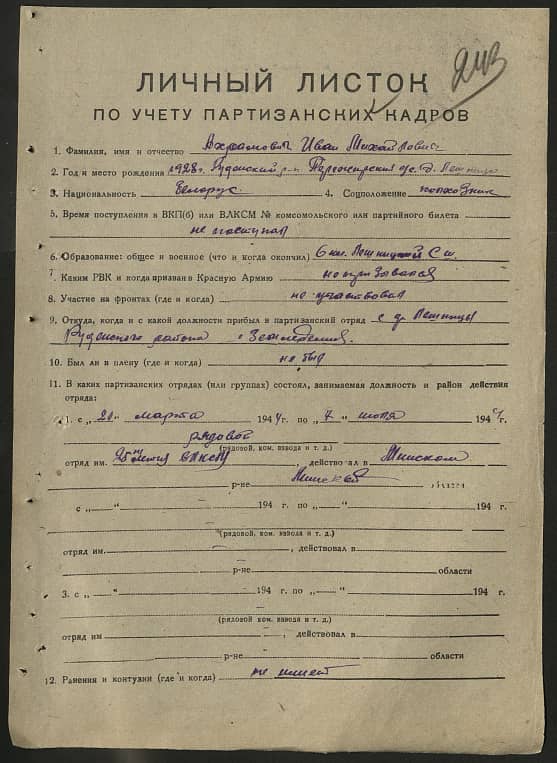 ЛИЧНЫЙ ЛИСТОК
ПО УЧЕТУ ПАРТИЗАНСКИХ КАДРОВ
1. Фамилия, имя и отчество Ахрамович Иван Михайлович
2. Год и место рождения 1928 г. Руденский р-н д. Лешница
3. Национальность белорус. 4. Соцположение колхозник
5. Время поступления в ВКП(б) или ВЛКСМ № комсомольского или партийного билета
не поступал
6. Образование: общее и военное (что и когда окончил) 6 кл. Лешницкой С.ш.
7. Каким РВК и когда призван в Красную Армию не призывался
8. Участие на фронтах (где и когда) не участвовал
9. Откуда, когда и с какой должности прибыл в партизанский отряд с д. Лешницы
Руденского района с Земледелия.
10. Был ли в плену (где и когда) не был
11. В каких партизанских отрядах (или группах) состоял, занимаемая должность и район действия
отряда:
1. с „20" марта 1944 г. по „7" июля 1944
рядовой
(рядовой, ком. взвода и т. д.)
отряд им. 25 летия ВЛКСМ, действовал в Минском
р-не Минской области
с „ " 194 г. по „ " 194 г.
(рядовой, ком. взвода и т. д.)
отряд им. , действовал в
р-не области
3. с „ " 194 г. по „ " 194 г.
(рядовой, ком. взвода и т. д.)
отряд им , действовал в
р-не области
12. Ранения и контузии (где и когда) не имеет